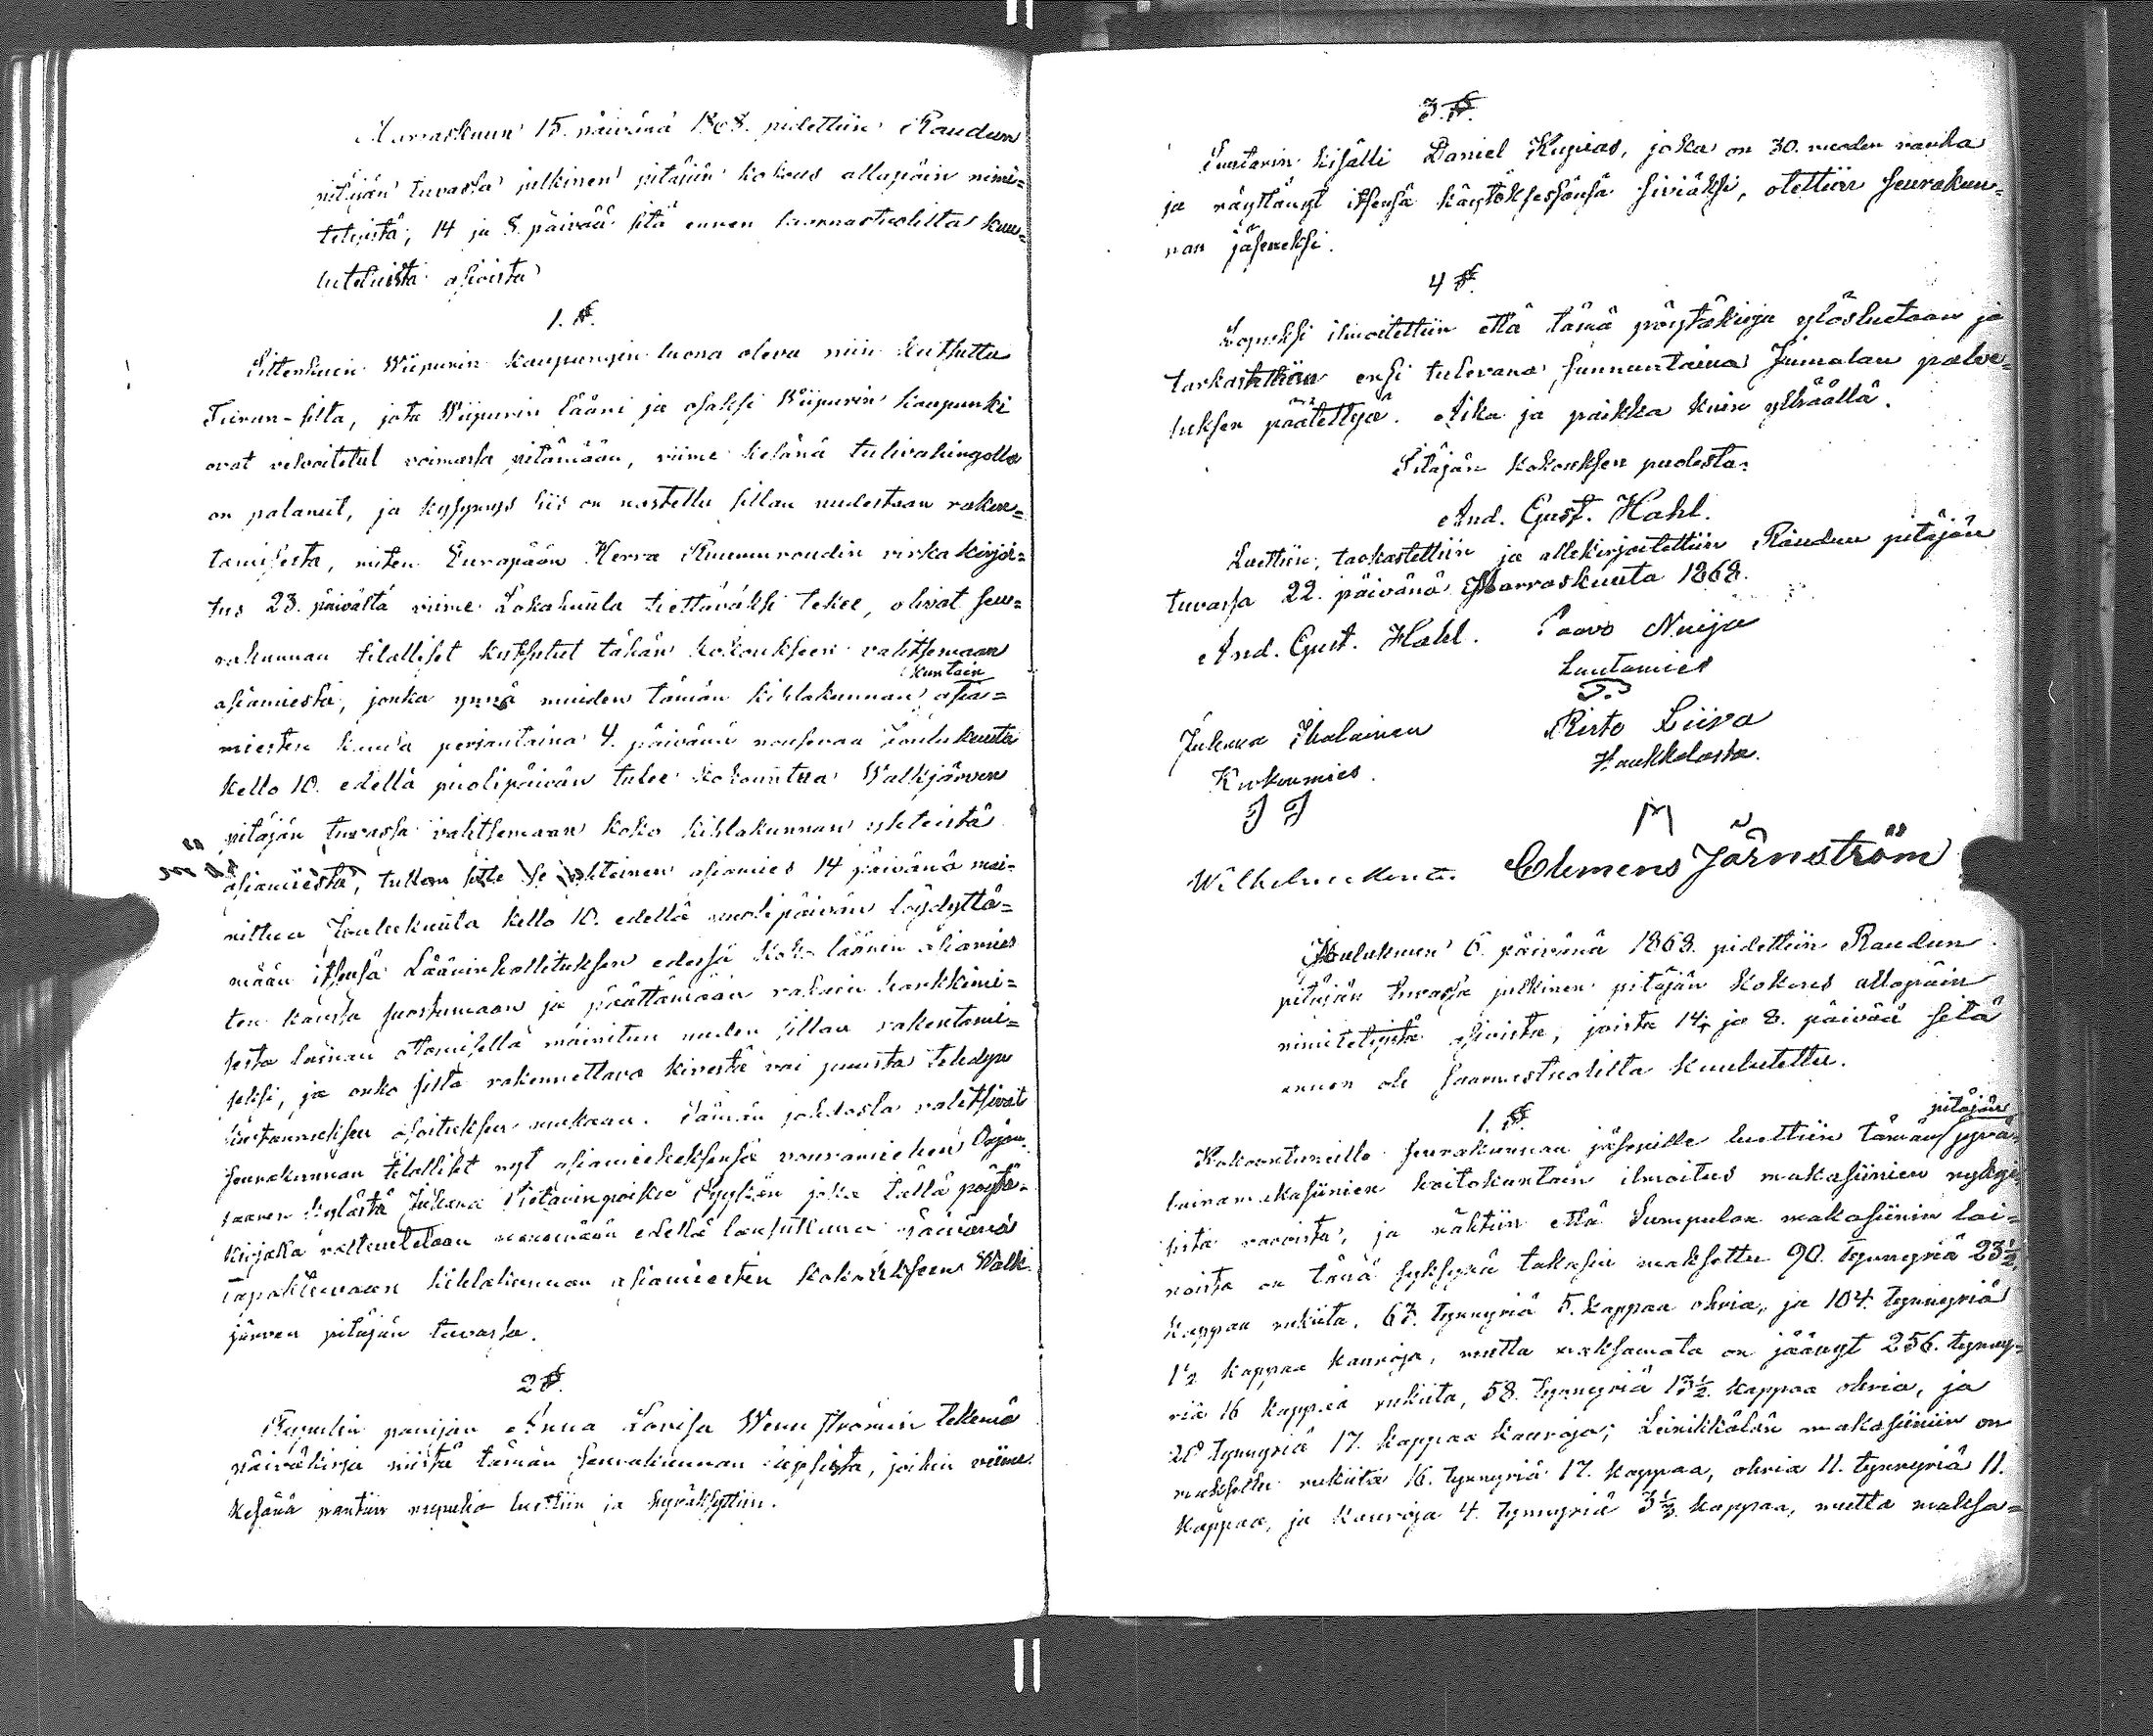 Marraskuun 15. päivänä 1868. pidettiin Raudun
pitäjän tuvassa julkinen pitäjän kokous allapäin nimi=
tetyistä, 14 ja 8. päivää sitä ennen saarnastuolilta kuu=
lutetuista asioista
1. §.
Sittenkuin Wiipurin kaupungin luona oleva niin kutsuttu
Turun-silta, jota Wiipurin lääni ja osaksi Wiipurin kaupunki
ovat velvoitetut voimassa pitämään, viime kesänä tulivahingolla
on palanut, ja kysymys siis on nostettu sillan uudestaan raken=
tamisesta, miten Euräpään Herra Kruununvoudin virka kirjoi=
tus 23. päivältä viime Lokakuuta tiettäväksi tekee, olivat seu=
rakunnan tilalliset kutsutut tähän kokoukseen valitsemaan
kuntain
asiamiestä, jonka ynnä muiden tämän kihlakunnan asia=
miesten kanssa perjantaina 4. päivänä nousevaa Joulukuuta
kello 10. edellä puolipäivän tulee kokountua Walkjärven
pitäjän tuvassa valitsemaan koko kihlakunnan yhteistä
asiamiestä, tullen sitte se yhteinen asiamies 14 päivänä mai=
nittua Joulukuuta kello 10. edellä puolipäivän löydyttä=
mään itsensä Läänin hallituksen edessä koko läänin asiamies
ten kanssa suostumaan ja päättämään rahain hankkimi=
sesta lainan ottamisella mainitun uuden sillan rakentami=
seksi, ja onko silta rakennettava kivestä vai puusta tehdyn
kustannuksen osoituksen mukaan. Tämän johdosta valitsivat
seurakunnan tilalliset nyt asiamieheksensä vouramiehen Orjan
saaren kylästä Juhana Pietarinpoika Pyykön joka tällä pöytä=
kirjalla valtuutetaan menemään edellä lausuttuna päivänä
tapahtuvaan kihlakunnan asiamiesten kokoukseen Walk
järven pitäjän tuvassa.
2 §.
Rupulin panijan Anna Lovisa Wennströmin tekemä
päiväkirja niistä tämän seurakunnan lapsista, joihin viime
kesänä pantiin rupulia luettiin ja hyväksyttiin.
3. §.
Suutarin kisälli Daniel Kupias, joka on 30. vuoden vanha
ja näyttänyt itsensä käytöksessänsä siviäksi, otettiin seurakun=
nan jäseneksi.
4 §.
Lopuksi ilmoitettiin että tämä pöytäkirja ylösluetaan ja
tarkastetaan ensi tulevana sunnuntaina Jumalan palve=
luksen päätettyä. Aika ja paikka kuin ylhäällä.
Pitäjän kokouksen puolesta:
And. Gust. Hahl.
Luettiin, tarkastettiin ja allekirjoitettiin Raudun pitäjän
tuvassa 22. päivänä Marraskuuta 1868.
And. Gust. Hahl. Paavo Nuija
Lautamies
Juhana Ihalainen Risto Liiva
Kirkonmies. Haukkalasta.
Clemens Järnström
Joulukuun 6. päivänä 1868. pidettiin Raudun
pitäjän tuvassa julkinen pitäjän kokous allapäin
nimitetyistä asioista, joista 14; ja 8. päivää sitä
ennen oli saarnastuolilta kuulutettu.
1. §.
pitäjän
Kokoontuneille seurakunnan jäsenille luettiin tämän jyvä=
lainamakasiinien hoitokuntain ilmoitus makasiinien nykyi
sistä varoista, ja nähtiin että Sumpulan makasiinin lai=
noista on tänä syksynä takasin maksettu 90. tynnyriä 23½
kappaa rukiita, 63. tynnyriä 5. kappaa ohria, ja 104. tynnyriä
1½ kappaa kauroja, mutta maksamata on jäänyt 256. tynny=
riä 16 kappaa rukiita, 58. tynnyriä 13½ kappaa ohria, ja
28 tynnyriä 17. kappaa kauroja; Leinikkälän makasiiniin on
maksettu rukiita 16. tynnyriä 17. kappaa, ohria 11. tynnyriä 11.
kappaa, ja kauroja 4. tynnyriä 3½ kappaa, mutta maksa=